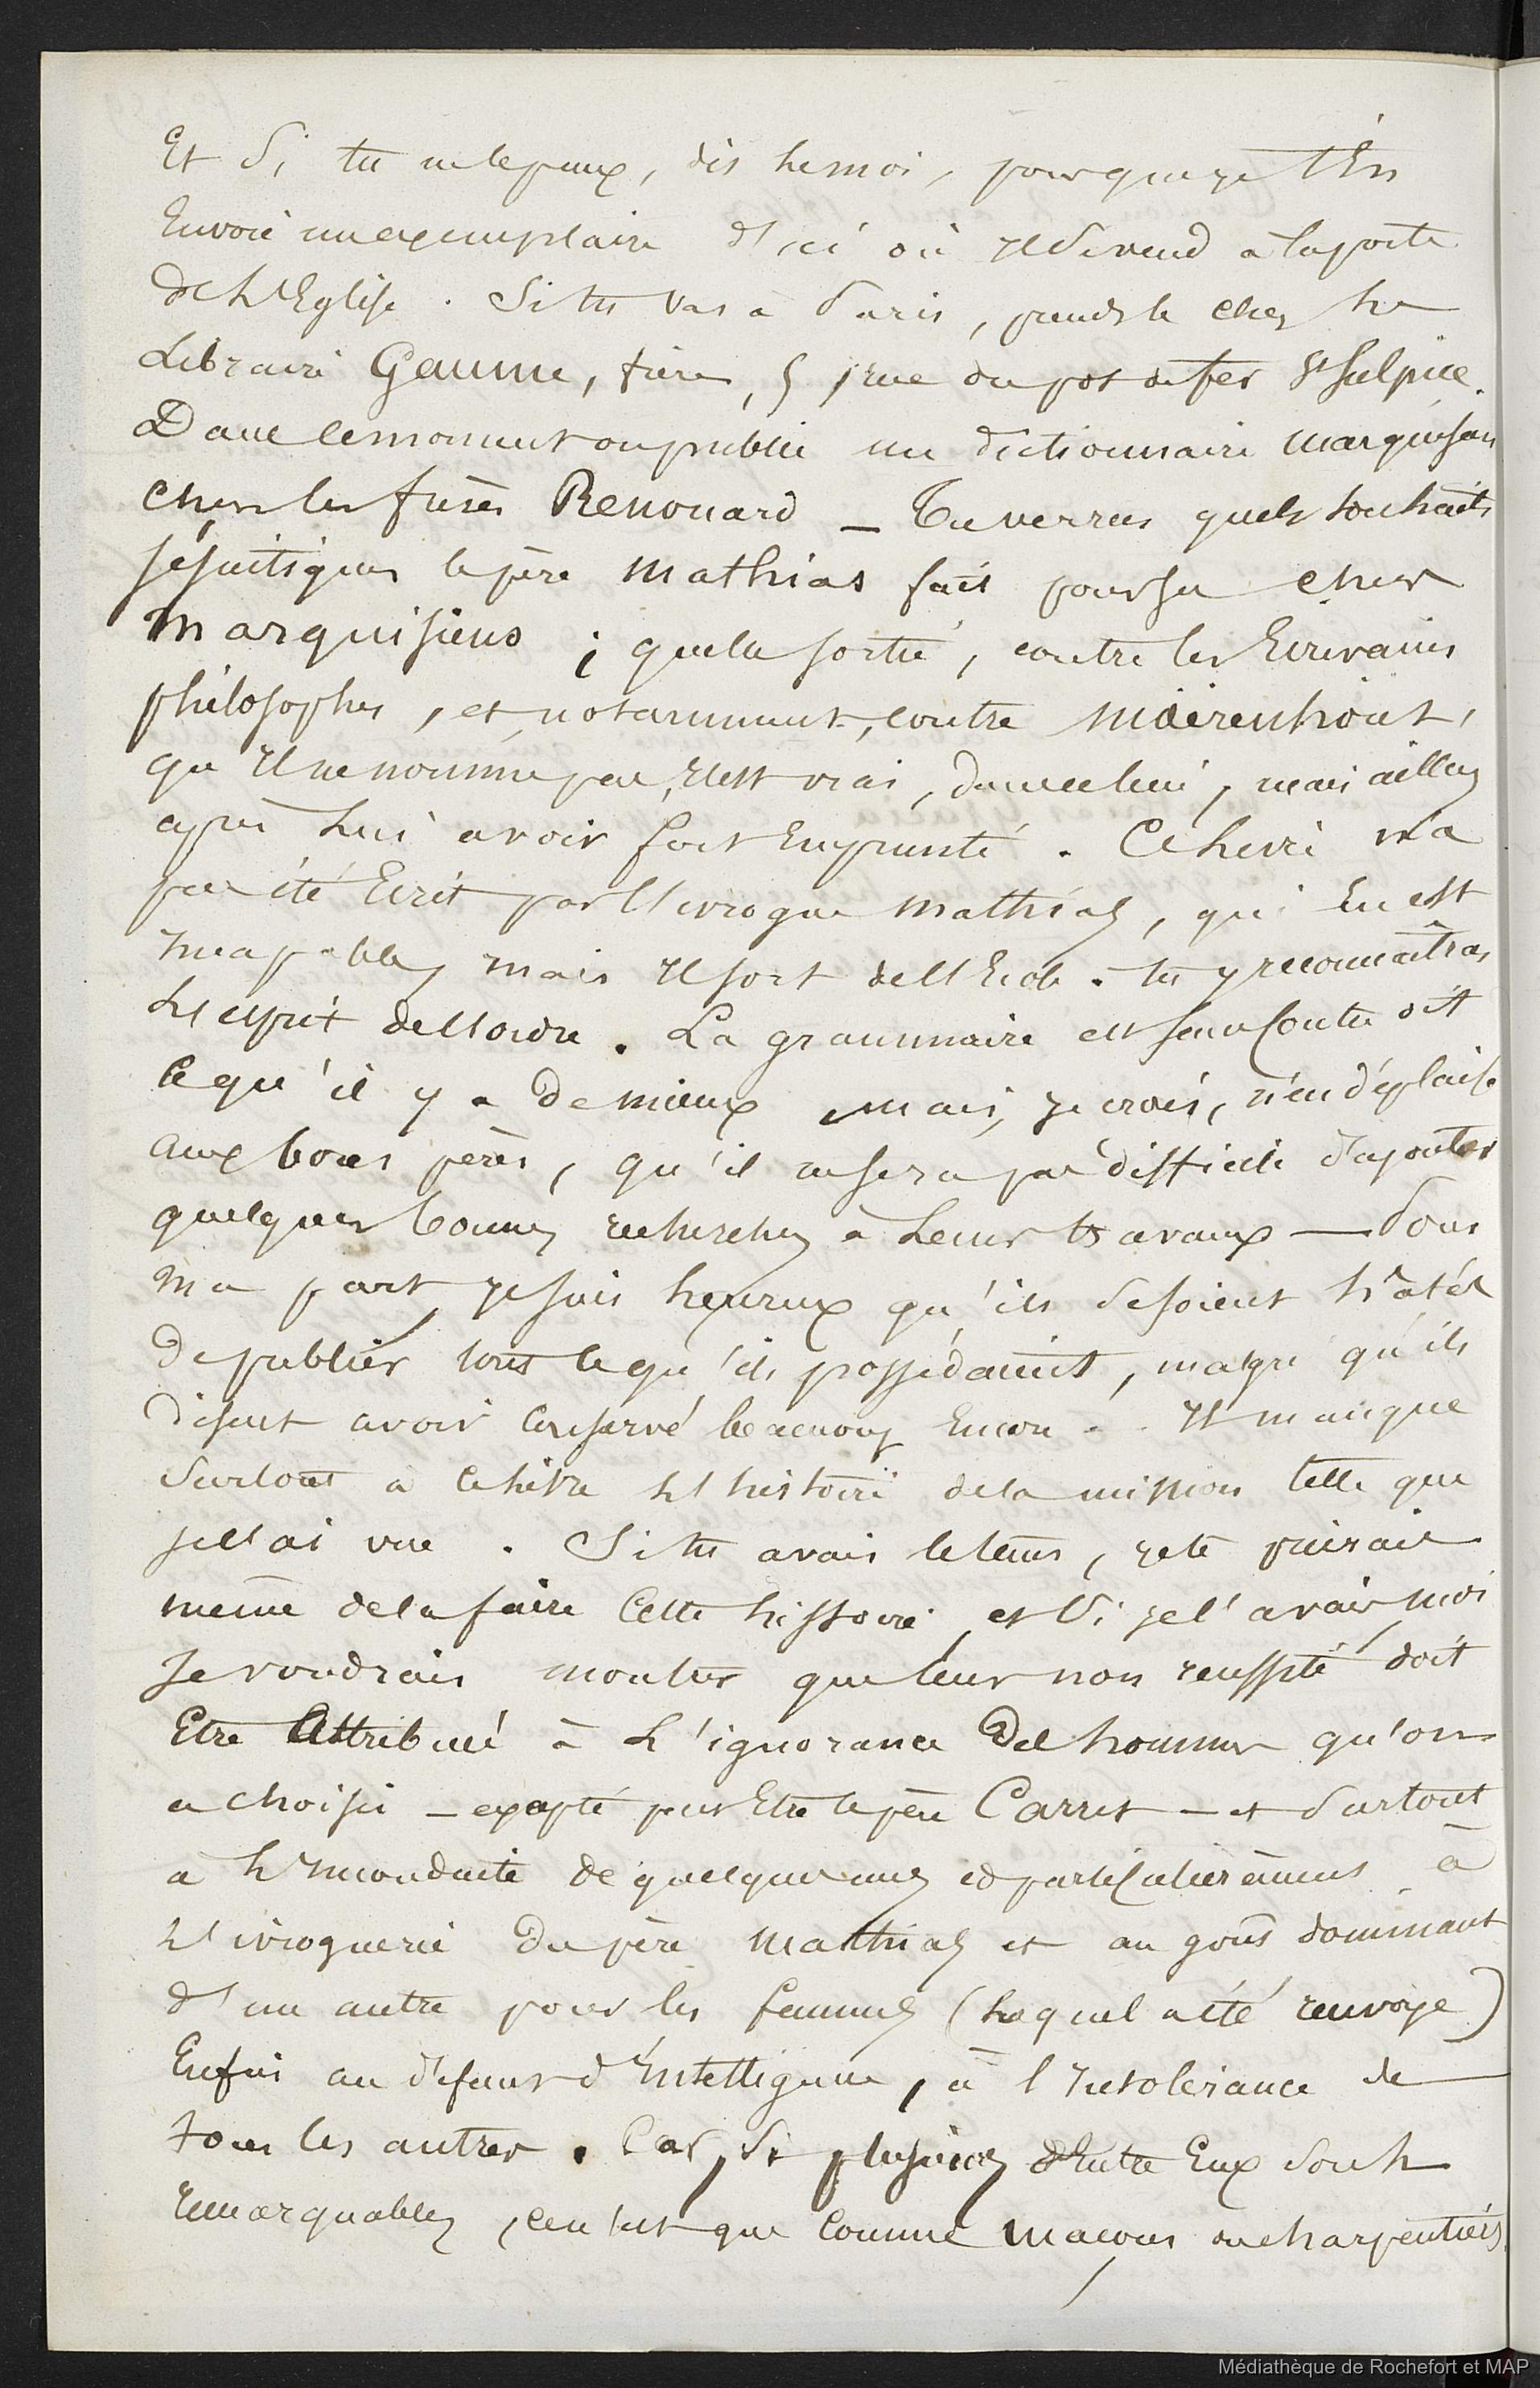 Et Si tu ne le peux, dis le moi, pour que je t'En
Envoie un exemplaire d'ici où Il se vend à la porte
de L'Eglise. Si tu vas à Paris, prends le chez le
Libraire Gaume, frères, 5 rue du pot de fer St Sulpice.
Dans ce moment on publie un dictionnaire marquisan
chez les frères Renouard _ Tu verras quels souhaits
jésuitiques le père Mathias fait pour ses chers
Marquisiens ; quelle sortie, contre les Ecrivains
philosophes, et notamment, contre Moerenhout,
qu'Il ne nomme pas, Il est vrai, dans celui, mais ailleurs
après Lui avoir fort Emprunté. Ce livre n'a
pas été Ecrit par l'ivrogne Mathias, qui En est
Incapable, mais Il sort de l'Ecole. tu y reconnaîtras
L'esprit de l'ordre. La grammaire est sans contredit
ce qu'il y a de mieux mais, je crois, n'en déplaise
aux bons pères, qu'il ne sera pas difficile d'ajouter
quelques bonnes recherches à Leurs travaux — Pour
ma part, je suis heureux qu'ils se soient hâtés
de publier tout ce qu'ils possédaient, malgré qu'ils
disent avoir conservé beaucoup Encore. Il manque
surtout à ce livre L'histoire de la mission telle que
je l'ai vue. Si tu avais le tems, je te prierais
même de la faire cette histoire et Si je l'avais, moi
Je voudrais montrer que leur non reussite doit
Etre Attribuée à L'ignorance des hommes qu'on
a choisis — excepté peut Etre le père Carret — et surtout
à L'Inconduite de quelques uns, et particulièrement à
L'ivrognerie du père Mathias et au goût dominant
d'un autre pour les femmes (Lequel a été renvoyé)
Enfin au défaut d'Intelligence, à l'Intolérance de
tous les autres. Car, Si plusieurs d'Entre Eux sont
Remarquables, ce n'est que comme maçons ou charpentiers
Médiathèque de Rochefort et MAP